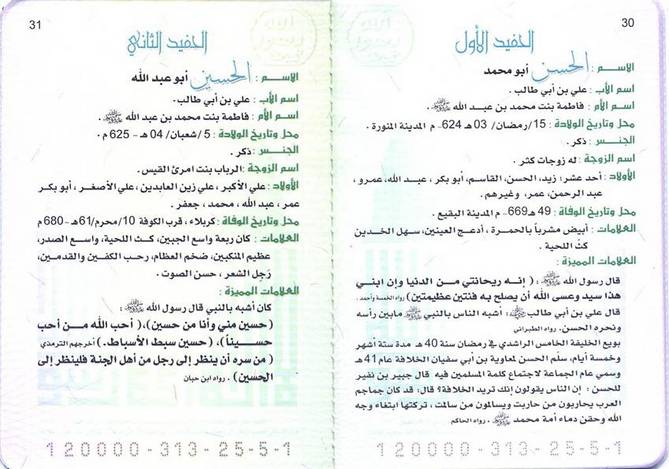 30
الحفيد الأول
الاسـم : الحسن أبو محمد
اسم الأب : علي بن أبي طالب .
اسم الأم : فاطمة بنت محمد بن عبد الله ﷺ .
محل وتاريخ الولادة : 15/رمضان/ 03 هـ 624 م المدينة المنورة .
الجنـس : ذكر .
اسم الزوجة : له زوجات كثر .
الأولاد : أحد عشر: زيد، الحسن، القاسم، أبو بكر ، عبد الله، عمرو ،
عبد الرحمن، عمر، وغيرهم .
محل وتاريخ الوفاة : 49 هـ 669 م المدينة البقيع .
العلامات : أبيض مشرباً بالحمرة ، أدعج العينين، سهل الخدين
كث اللحية .
العلامات المميزة :
قال رسول الله ﷺ : ( إنه ريحانتي من الدنيا وإن ابني
هذا سيد وعسى الله أن يصلح به فئتين عظيمتين ) رواه الخمسة وأحمد .
قال علي بن أبي طالب : أشبه الناس بالنبي ﷺ مابين رأسه
ونحره الحسن. رواه الطبراني
بويع الخليفة الخامس الراشدي في رمضان سنة 40 هـ مدة ستة أشهر
وخمسة أيام، سلّم الحسن لمعاوية بن أبي سفيان الخلافة عام 41 هـ
وسمي عام الجماعة لاجتماع كلمة المسلمين فيه قال جبير بن نفير
للحسن : إن الناس يقولون إنك تريد الخلافة؟ قال: قد كان جماجم
العرب يحاربون من حاربت ويسالمون من سالمت ، تركتها ابتغاء وجه
الله وحقن دماء أمة محمد ﷺ . رواه الحاكم
120000-313-25-5-1
31
الحفيد الثاني
الاسـم : الحسين أبو عبد الله
اسم الأب : علي بن أبي طالب .
اسم الأم : فاطمة بنت محمد بن عبد الله ﷺ .
محل وتاريخ الولادة : 5 /شعبان/ 04 هـ - 625 م .
الجنـس : ذكر .
اسم الزوجة : الرباب بنت امرئ القيس .
الأولاد : علي الأكبر، علي زين العابدين ، علي الأصغر ، أبو بكر
عمر ، عبد الله ، محمد ، جعفر .
محل وتاريخ الوفاة : كربلاء ، قرب الكوفة 10/محرم/61هـ - 680 م
العلامات : كان ربعة واسع الجبين، كث اللحية، واسع الصدر،
عظيم المنكبين، ضخم العظام، رحب الكفين والقدمين،
رَجِل الشعر ، حسن الصوت .
العلامات المميزة :
كان أشبه بالنبي قال رسول الله ﷺ :
( حسين مني وأنا من حسين )، ( أحب الله من أحب
حسيناً )، ( حسين سبط الأسباط. ) أخرجهم الترمذي
( من سره أن ينظر إلى رجل من أهل الجنة فلينظر إلى
الحسين ) . رواه ابن حبان
120000-313-25-5-1